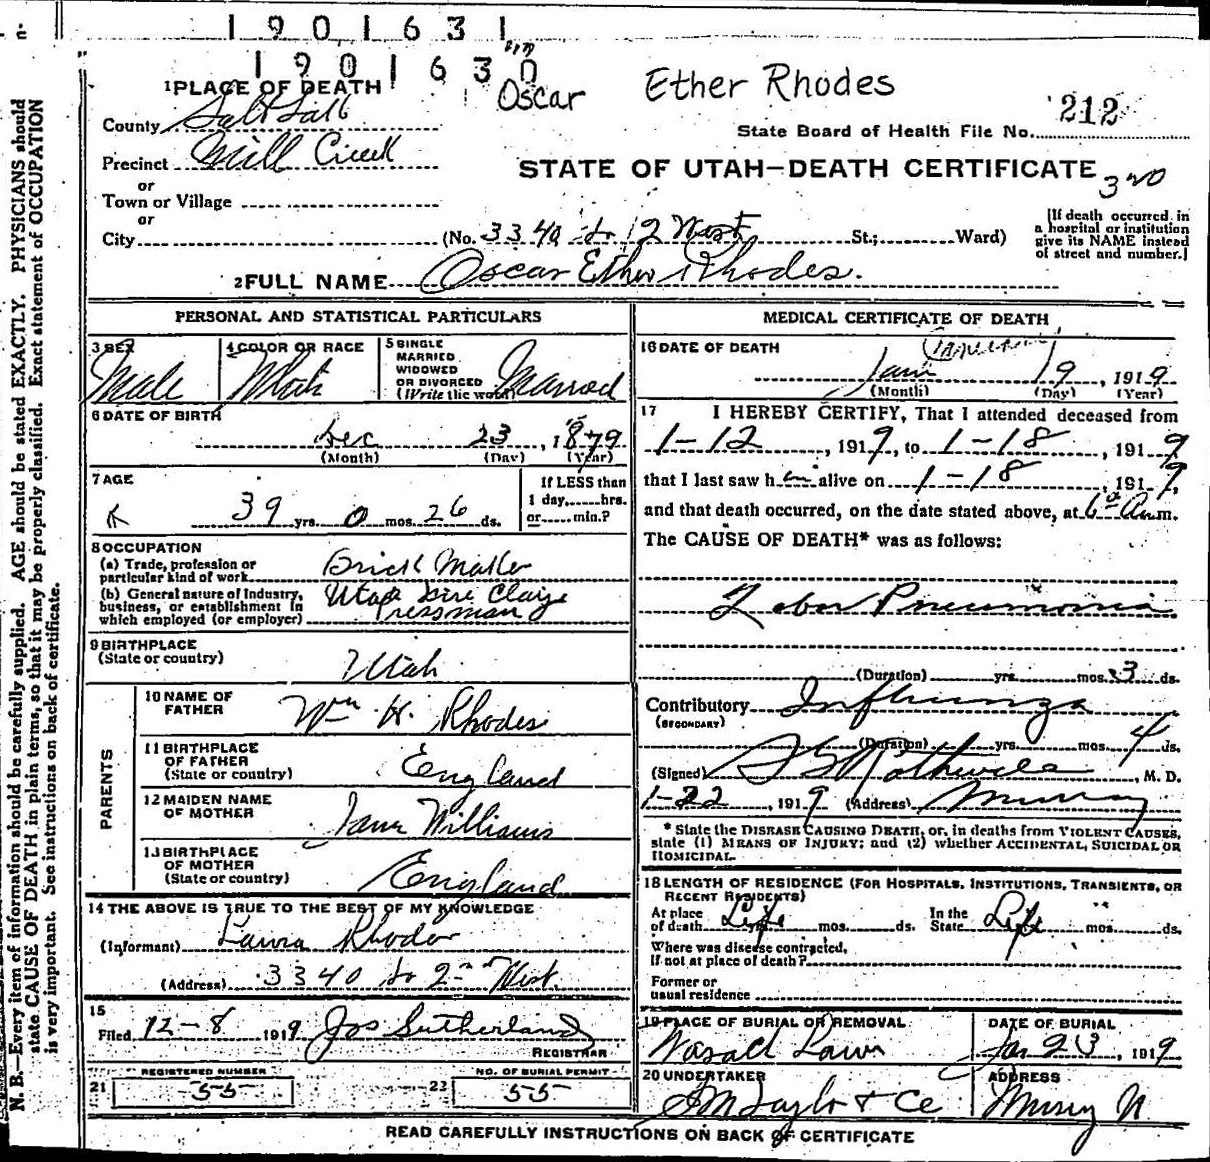 1901631
1901630
Oscar Ether Rhodes
212
1 PLACE OF DEATH
County Salt Lake
State Board of Health File No.
Precinct Mill Creek
STATE OF UTAH—DEATH CERTIFICATE
or
Town or Village
or
City (No. 3340 So 2 West St.; Ward)
[If death occurred in a hospital or institution give its NAME instead of street and number.]
2 FULL NAME Oscar Ether Rhodes.
PERSONAL AND STATISTICAL PARTICULARS
3 SEX
Male
4 COLOR OR RACE
White
5 SINGLE MARRIED WIDOWED OR DIVORCED (Write the word)
Married
6 DATE OF BIRTH
Dec 23, 1879
(Month) (Day) (Year)
7 AGE
39 yrs. 0 mos. 26 ds.
If LESS than 1 day, hrs. or min.?
8 OCCUPATION
(a) Trade, profession or particular kind of work Brick Maker
(b) General nature of Industry, business, or establishment in which employed (or employer) Utah Fire Clay
Pressman
9 BIRTHPLACE
(State or country) Utah
PARENTS
10 NAME OF FATHER Wm H. Rhodes
11 BIRTHPLACE OF FATHER (State or country) England
12 MAIDEN NAME OF MOTHER Jane Williams
13 BIRTHPLACE OF MOTHER (State or country) England
14 THE ABOVE IS TRUE TO THE BEST OF MY KNOWLEDGE
(Informant) Laura Rhodes
(Address) 3340 So 2nd West.
15
Filed 12-8 1919 Jos Sutherland
REGISTRAR
REGISTERED NUMBER
21 55
NO. OF BURIAL PERMIT
22 55
MEDICAL CERTIFICATE OF DEATH
16 DATE OF DEATH
Jan 19, 1919
(Month) (Day) (Year)
17 I HEREBY CERTIFY, That I attended deceased from
1-12, 1919, to 1-18, 1919
that I last saw him alive on 1-18, 1919,
and that death occurred, on the date stated above, at 6 a.m.
The CAUSE OF DEATH* was as follows:
Lobar Pneumonia
(Duration) yrs. mos. 3 ds.
Contributory Influenza
(SECONDARY)
(Duration) yrs. mos. 4 ds.
(Signed) Rothwell, M. D.
1-22, 1919 (Address) Murray
* State the DISEASE CAUSING DEATH, or, in deaths from VIOLENT CAUSES,
state (1) MEANS OF INJURY; and (2) whether ACCIDENTAL, SUICIDAL OR
HOMICIDAL.
18 LENGTH OF RESIDENCE (FOR HOSPITALS, INSTITUTIONS, TRANSIENTS, OR
RECENT RESIDENTS)
At place of death Life yrs. mos. ds. In the State Life mos. ds.
Where was disease contracted,
If not at place of death?
Former or
usual residence
19 PLACE OF BURIAL OR REMOVAL
Wasatch Lawn
DATE OF BURIAL
Jan 23, 1919
20 UNDERTAKER
Taylor & Co
ADDRESS
Murray U
READ CAREFULLY INSTRUCTIONS ON BACK OF CERTIFICATE
N. B.—Every item of information should be carefully supplied. AGE should be stated EXACTLY. PHYSICIANS should
state CAUSE OF DEATH in plain terms, so that it may be properly classified. Exact statement of OCCUPATION
is very important. See instructions on back of certificate.